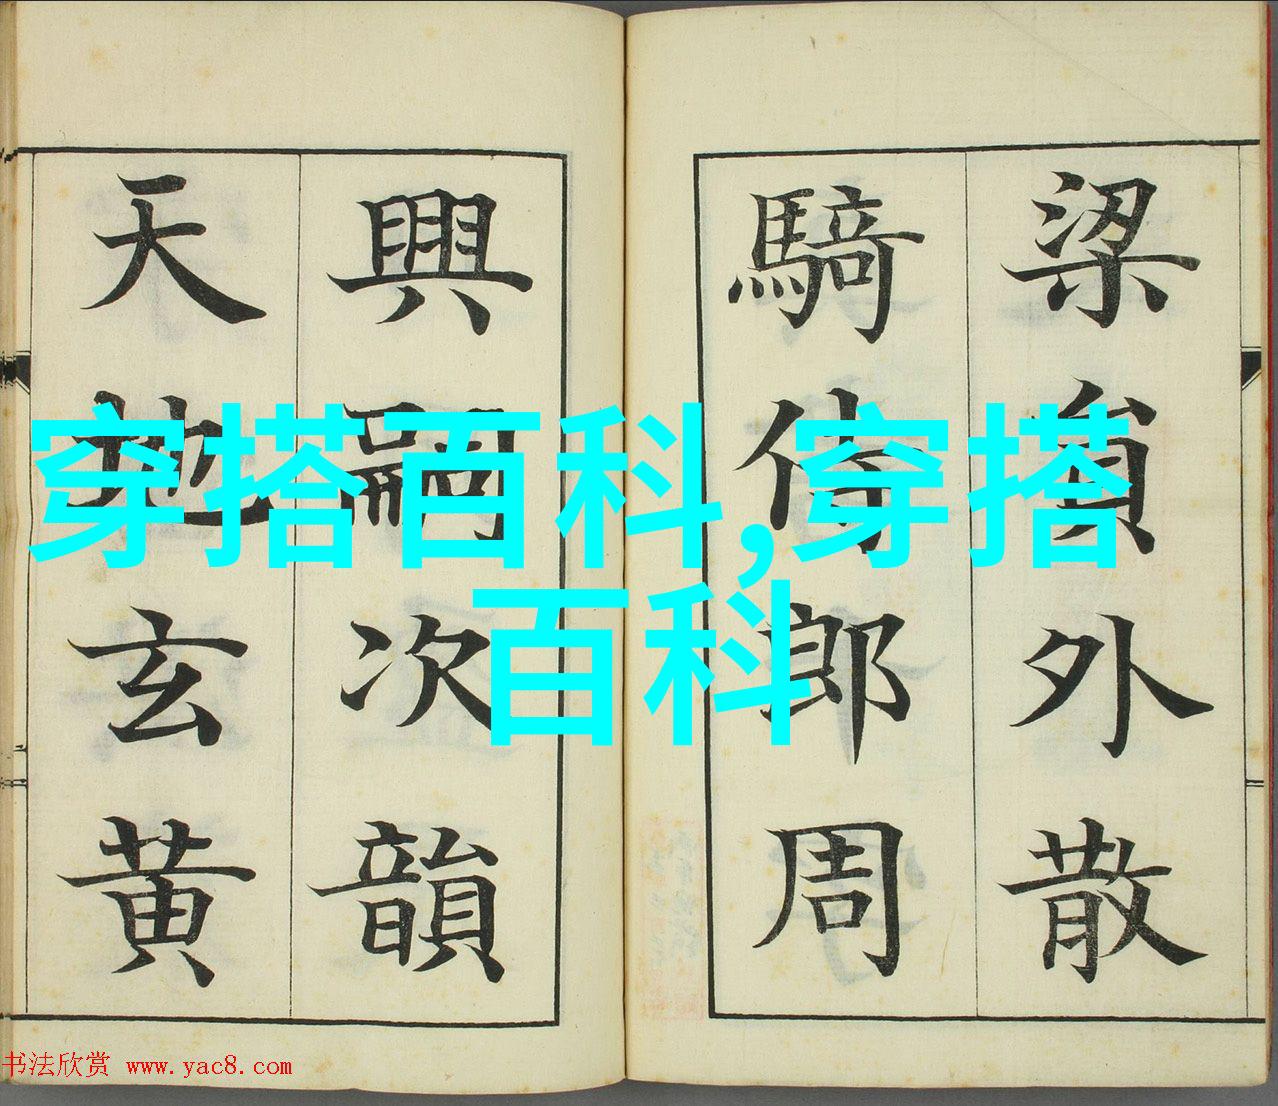 梁貟外散
騎侍郎周
興嗣次韻
天地玄黄
穿搭百科,穿搭
百科
书法欣赏 www.yac8.com